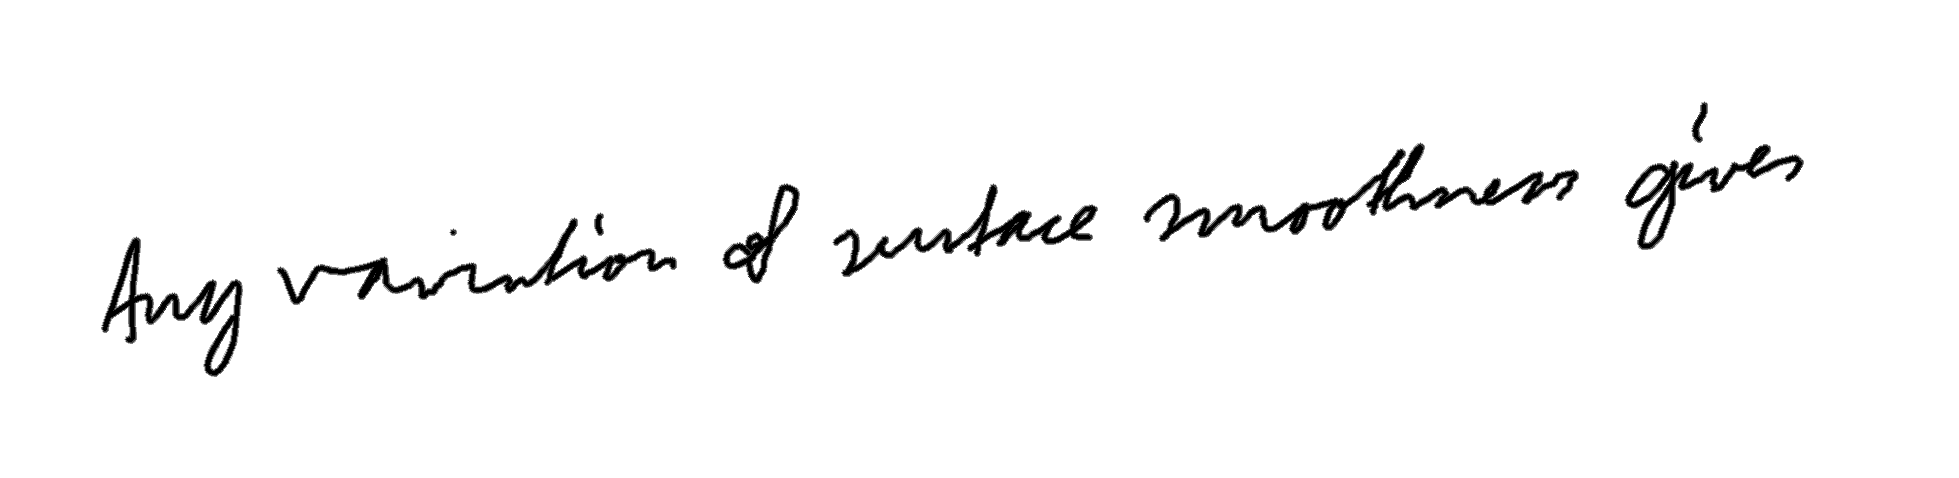 Any variation of surface smoothness gives